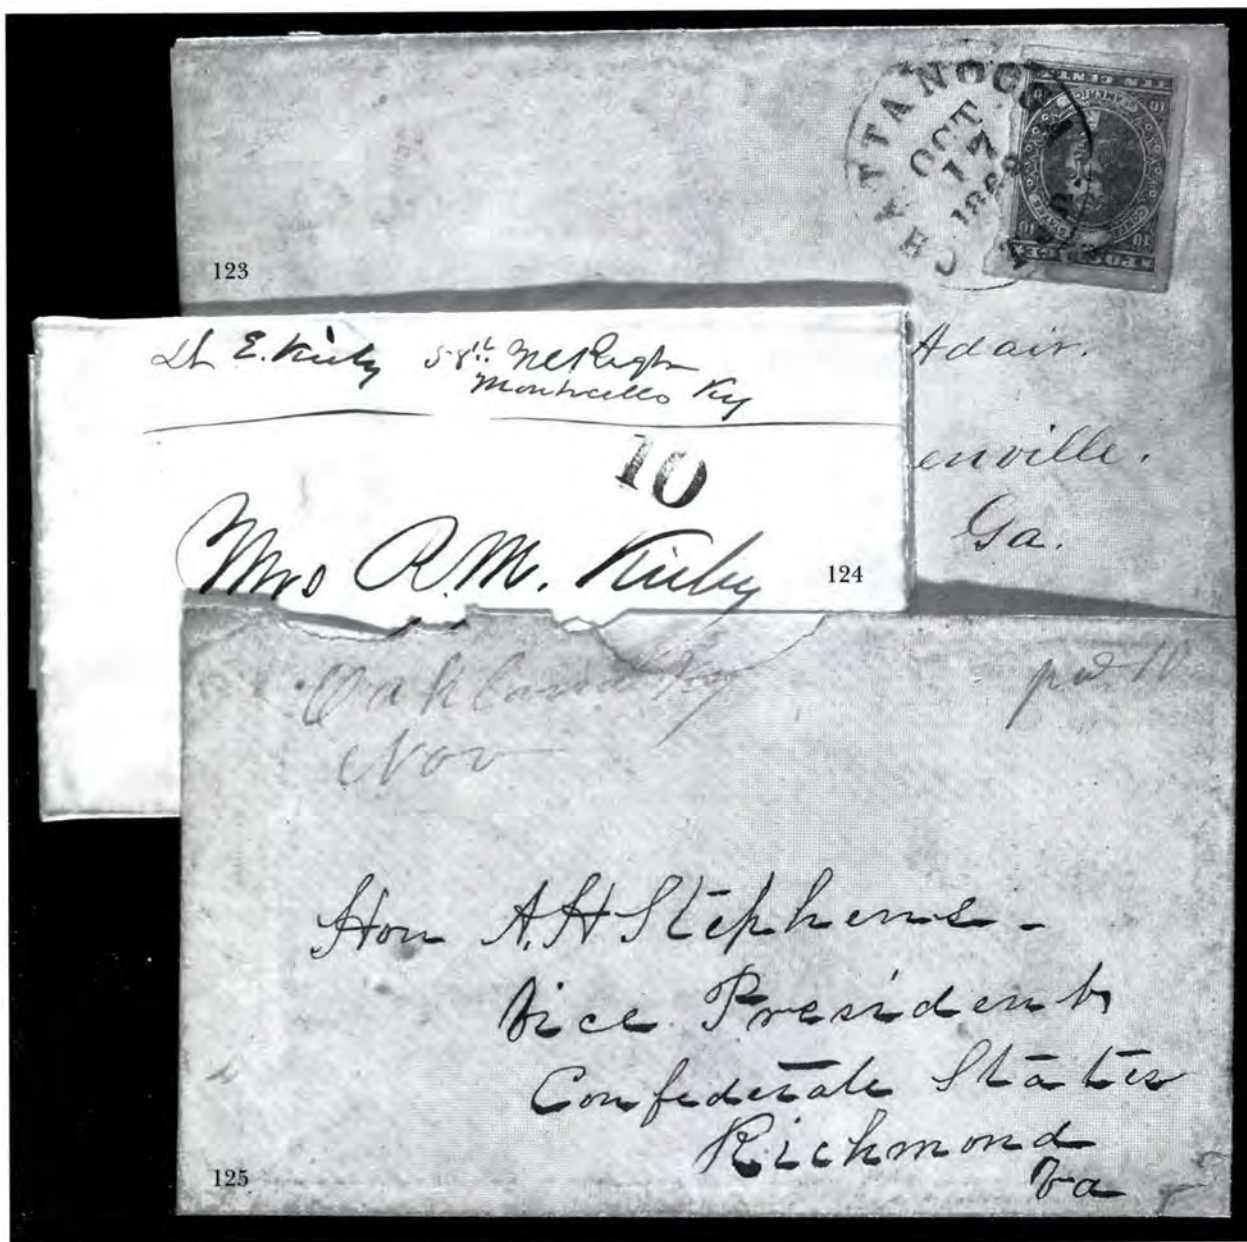 CHATTANOOGA
OCT
17
TEN CENTS
10 10
10 10
POSTAGE
123
Adair.
enville.
Ga.
Lt E. Kirby 58th NC Regt
Monticello Ky
10
Mrs R.M. Kirby
124
Oakland Ky
Nov
pd 10
Hon A.H Stephens -
Vice President
Confederate States
Richmond
Va
125